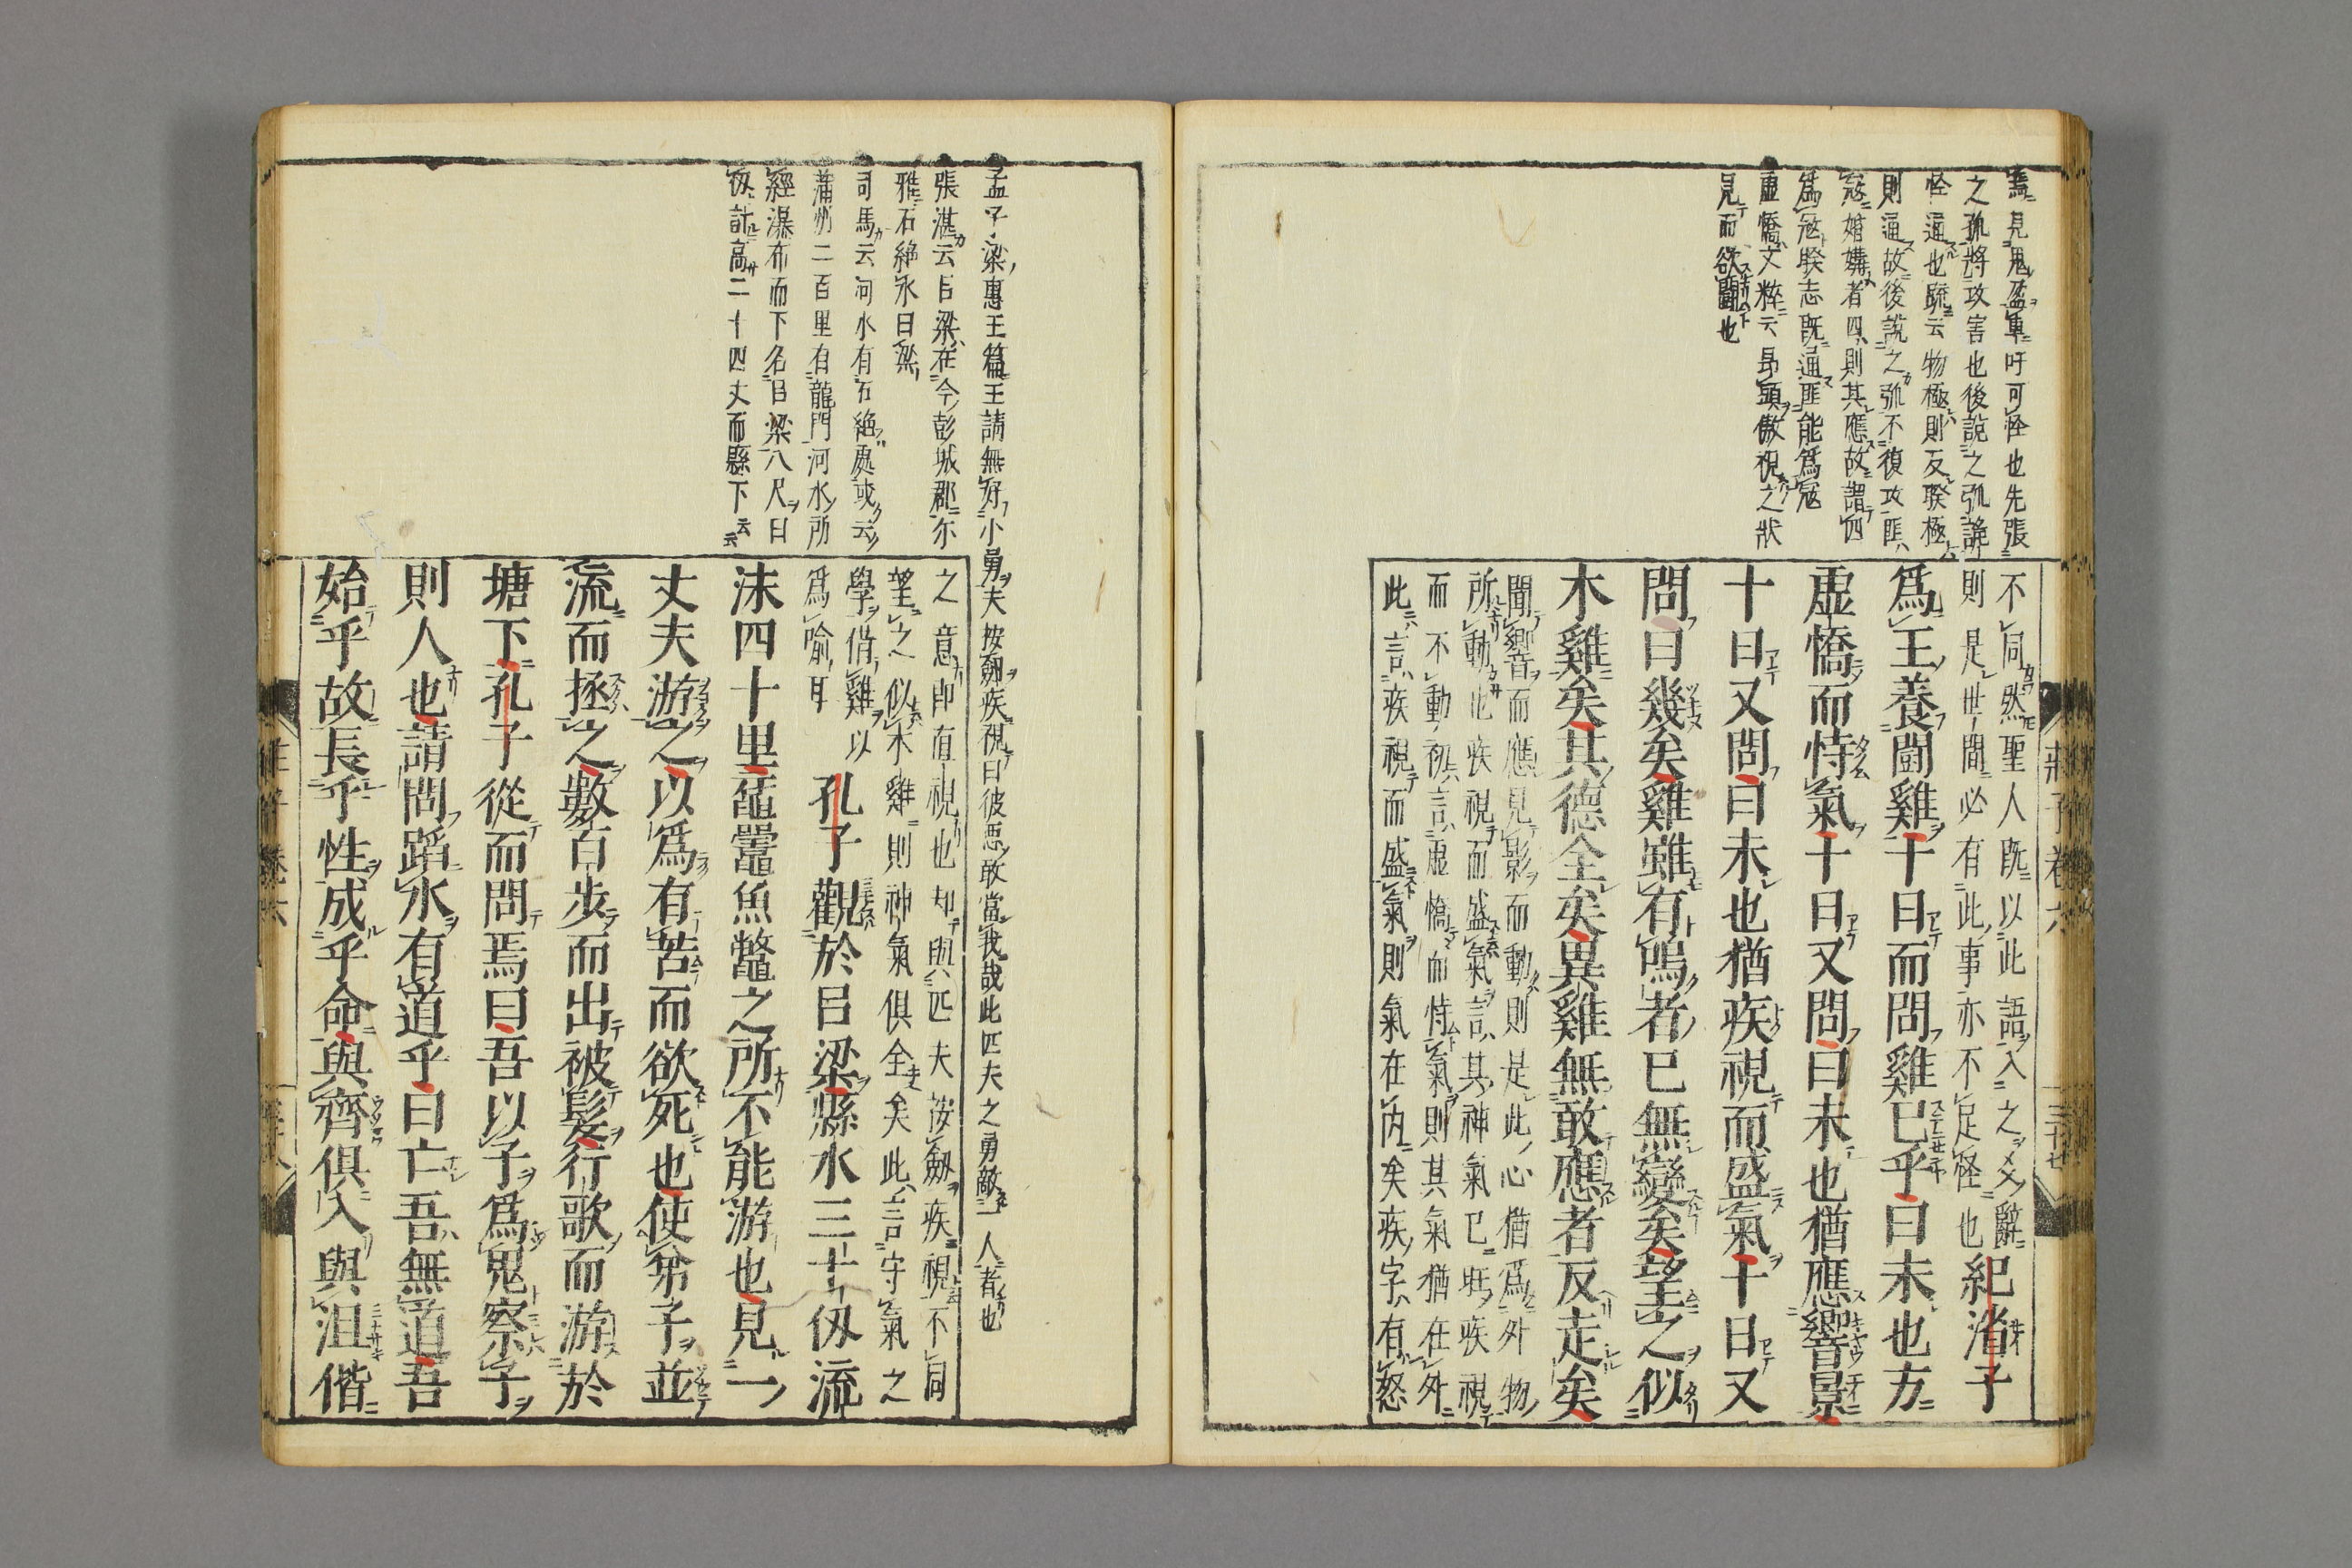 爲見鬼盈車吁可怪也先張
之弧將攻害也後說之弧詭
怪通也疏云物極則反睽極
則通故後說之弧不復攻匪
寇婚媾者四則其應故謂四
爲寇睽志既通匪能爲寇
虛憍文粹云昂頭傲視之狀
見而欲鬪也
不同然聖人既以此語入之爻辭
則是世間必有此事亦不足怪也
紀渻子
爲王養鬪雞十日而問雞已乎曰未也方
虛憍而恃氣十日又問曰未也猶應響景
十日又問曰未也猶疾視而盛氣十日又
問曰幾矣雞雖有鳴者已無變矣望之似
木雞矣其德全矣異雞無敢應者反走矣
聞響而應見影而動則是此心猶爲外物
所動也疾視而盛氣言其神氣已旺疾視
而不動初言虛憍而恃氣則其氣猶在外
此言疾視而盛氣則氣在內矣疾字有怒
莊子卷六
三十七
孟子梁惠王篇王請無好小勇夫按劒疾視曰彼惡敢當我哉此匹夫之勇敵一人者也
張湛云呂梁在今彭城郡尓
雅石絕水曰梁
司馬云河水有石絕處或云
蒲州二百里有龍門河水所
經瀑布而下名曰梁八尺曰
仭計高二十四丈而縣下云云
之意即直視也却與匹夫按劒疾視不同
望之似木雞則神氣俱全矣此言守氣之
學借雞以
爲喻耳
孔子觀於呂梁縣水三十仭流
沫四十里黿鼉魚鼈之所不能游也見一
丈夫游之以爲有苦而欲死也使弟子並
流而拯之數百步而出被髮行歌而游於
塘下孔子從而問焉曰吾以子爲鬼察子
則人也請問蹈水有道乎曰亡吾無道吾
始乎故長乎性成乎命與齊俱入與汨偕